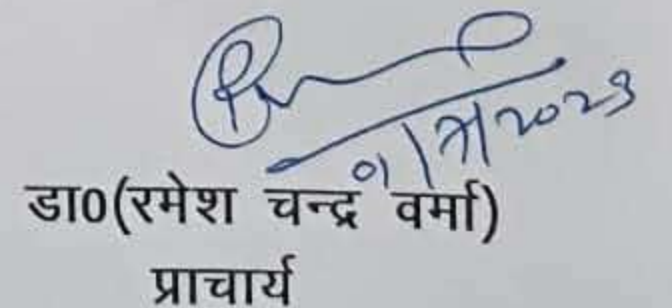 01/7/2023
डा0(रमेश चन्द्र वर्मा)
प्राचार्य